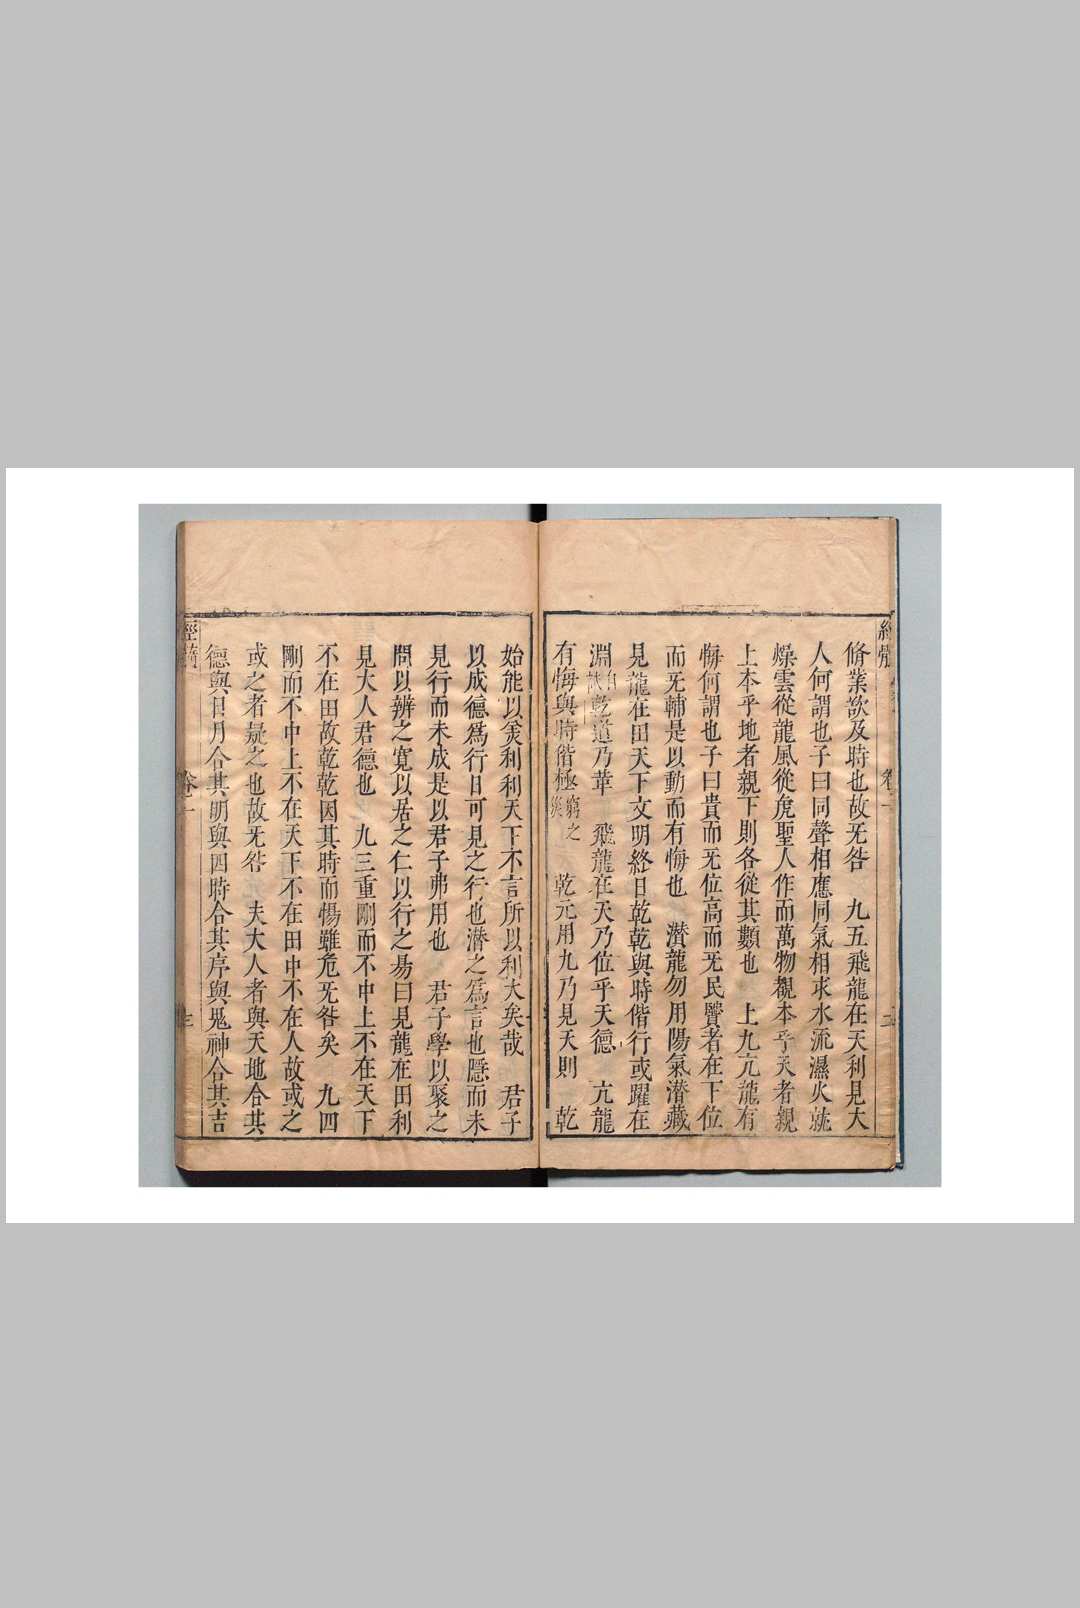 脩業欲及時也故旡咎　九五飛龍在天利見大
人何謂也子曰同聲相應同氣相求水流濕火就
燥雲從龍風從虎聖人作而萬物覩本乎天者親
上本乎地者親下則各從其類也　上九亢龍有
悔何謂也子曰貴而旡位高而旡民賢者在下位
而旡輔是以動而有悔也　潛龍勿用陽氣潛藏
見龍在田天下文明終日乾乾與時偕行或躍在
淵自乾道乃革　飛龍在天乃位乎天德　亢龍
有悔與時偕極窮之災　乾元用九乃見天則　乾
始能以美利利天下不言所以利大矣哉　君子
以成德爲行日可見之行也潛之爲言也隱而未
見行而未成是以君子弗用也　君子學以聚之
問以辨之寬以居之仁以行之易曰見龍在田利
見大人君德也　九三重剛而不中上不在天下
不在田故乾乾因其時而惕雖危旡咎矣　九四
剛而不中上不在天下不在田中不在人故或之
或之者疑之也故旡咎　夫大人者與天地合其
德與日月合其明與四時合其序與鬼神合其吉
經 卷一